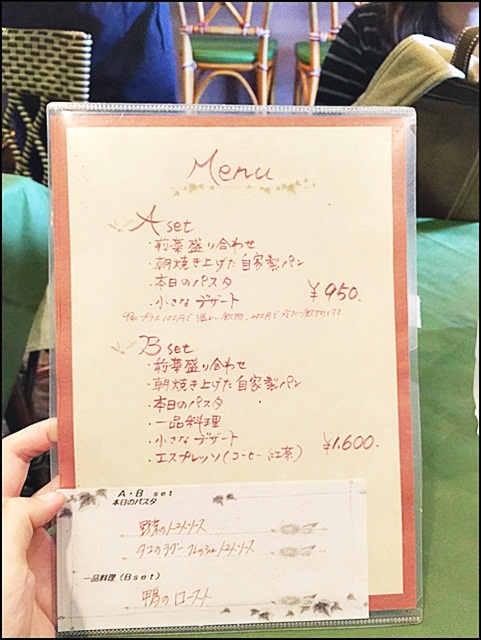 Menu
A set
・前菜盛り合わせ
・朝焼き上げた自家製パン
・本日のパスタ
・小さなデザート
¥950.
プラス100円で温かい飲物、200円で冷たい飲物
B set
・前菜盛り合わせ
・朝焼き上げた自家製パン
・本日のパスタ
・一品料理
・小さなデザート
・エスプレッソ(コーヒー 紅茶)
¥1,600.
A・B set
本日のパスタ
野菜のトマトソース
タコのラグー フレッシュトマトソース
一品料理(Bset)
鴨のロースト